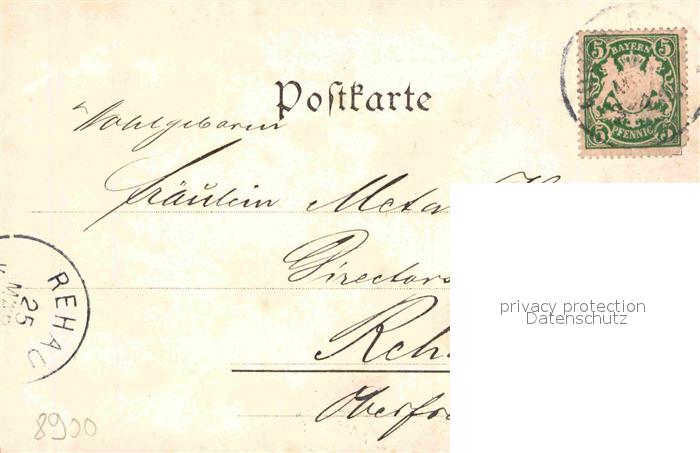 5 BAYERN 5
5 PFENNIG 5
Postkarte
Wohlgeboren
Fräulein Meta
Directors
Reh
Oberfr
REHAU
25
8900
privacy protection
Datenschutz